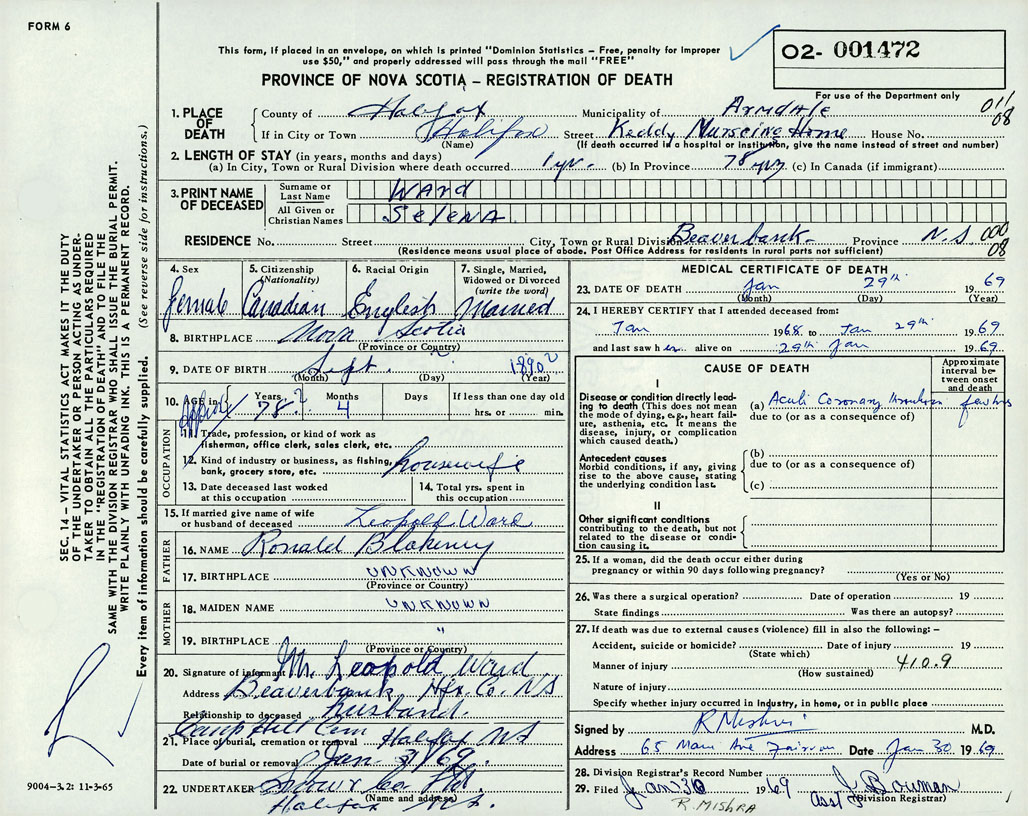 FORM 6
This form, if placed in an envelope, on which is printed "Dominion Statistics – Free, penalty for improper
use $50," and properly addressed will pass through the mail "FREE"
02- 001472
For use of the Department only
PROVINCE OF NOVA SCOTIA – REGISTRATION OF DEATH
1. PLACE OF DEATH
County of Halifax Municipality of Armdale 011
If in City or Town Halifax Street Keddy Nurscing Home House No. 08
(Name) (If death occurred in a hospital or institution, give the name instead of street and number)
2. LENGTH OF STAY (in years, months and days)
(a) In City, Town or Rural Division where death occurred 1 yr. (b) In Province 78 yrs (c) In Canada (if immigrant)
3. PRINT NAME OF DECEASED
Surname or Last Name WARD
All Given or Christian Names SELENA
RESIDENCE No. Street City, Town or Rural Division Beaverbank Province N.S 000
(Residence means usual place of abode. Post Office Address for residents in rural parts not sufficient) 08
4. Sex Female
5. Citizenship (Nationality) Canadian
6. Racial Origin English
7. Single, Married, Widowed or Divorced (write the word) Married
8. BIRTHPLACE Nova Scotia
(Province or Country)
9. DATE OF BIRTH Sept. ? 1890?
(Month) (Day) (Year)
10. AGE in approx Years 78? Months 4 Days If less than one day old hrs. or min.
OCCUPATION
11. Trade, profession, or kind of work as
fisherman, office clerk, sales clerk, etc.
12. Kind of industry or business, as fishing,
bank, grocery store, etc. housewife
13. Date deceased last worked
at this occupation
14. Total yrs. spent in
this occupation
15. If married give name of wife
or husband of deceased Leopold Ward
FATHER
16. NAME Ronald Blakeney
17. BIRTHPLACE UNKNOWN
(Province or Country)
MOTHER
18. MAIDEN NAME UNKNOWN
19. BIRTHPLACE "
(Province or Country)
20. Signature of informant Mr. Leopold Ward
Address Beaverbank Hfx. Co. NS
Relationship to deceased husband.
Camp Hill Cem
21. Place of burial, cremation or removal Halifax NS
Date of burial or removal Jan. 31/69.
22. UNDERTAKER Snow & Co Ltd.
(Name and address)
Halifax N.S.
MEDICAL CERTIFICATE OF DEATH
23. DATE OF DEATH Jan 29th 1969
(Month) (Day) (Year)
24. I HEREBY CERTIFY that I attended deceased from:
Jan 1968 to Jan 29th 1969
and last saw her alive on 29th Jan 1969
CAUSE OF DEATH
Approximate interval between onset and death
I
Disease or condition directly leading to death (This does not mean the mode of dying, e.g., heart failure, asthenia, etc. It means the disease, injury, or complication which caused death.)
(a) Acute Coronary thrombosis few hrs
due to (or as a consequence of)
Antecedent causes
Morbid conditions, if any, giving rise to the above cause, stating the underlying condition last.
(b)
due to (or as a consequence of)
(c)
II
Other significant conditions
contributing to the death, but not related to the disease or condition causing it.
25. If a woman, did the death occur either during
pregnancy or within 90 days following pregnancy?
(Yes or No)
26. Was there a surgical operation? Date of operation 19
State findings Was there an autopsy?
27. If death was due to external causes (violence) fill in also the following: –
Accident, suicide or homicide? Date of injury 19
(State which)
Manner of injury 410.9
(How sustained)
Nature of injury
Specify whether injury occurred in industry, in home, or in public place
Signed by R Mishra M.D.
Address 65 Main Ave Fairview Date Jan 30 1969
28. Division Registrar's Record Number
29. Filed Jan 30 1969 J. Bowman
Asst (Division Registrar)
R. MISHRA
SEC. 14 – VITAL STATISTICS ACT MAKES IT THE DUTY
OF THE UNDERTAKER OR PERSON ACTING AS UNDER-
TAKER TO OBTAIN ALL THE PARTICULARS REQUIRED
IN THE "REGISTRATION OF DEATH" AND TO FILE THE
SAME WITH THE DIVISION REGISTRAR WHO SHALL ISSUE THE BURIAL PERMIT.
WRITE PLAINLY WITH UNFADING INK. THIS IS A PERMANENT RECORD.
Every item of information should be carefully supplied. (See reverse side for instructions.)
9004-3.2: 11-3-65